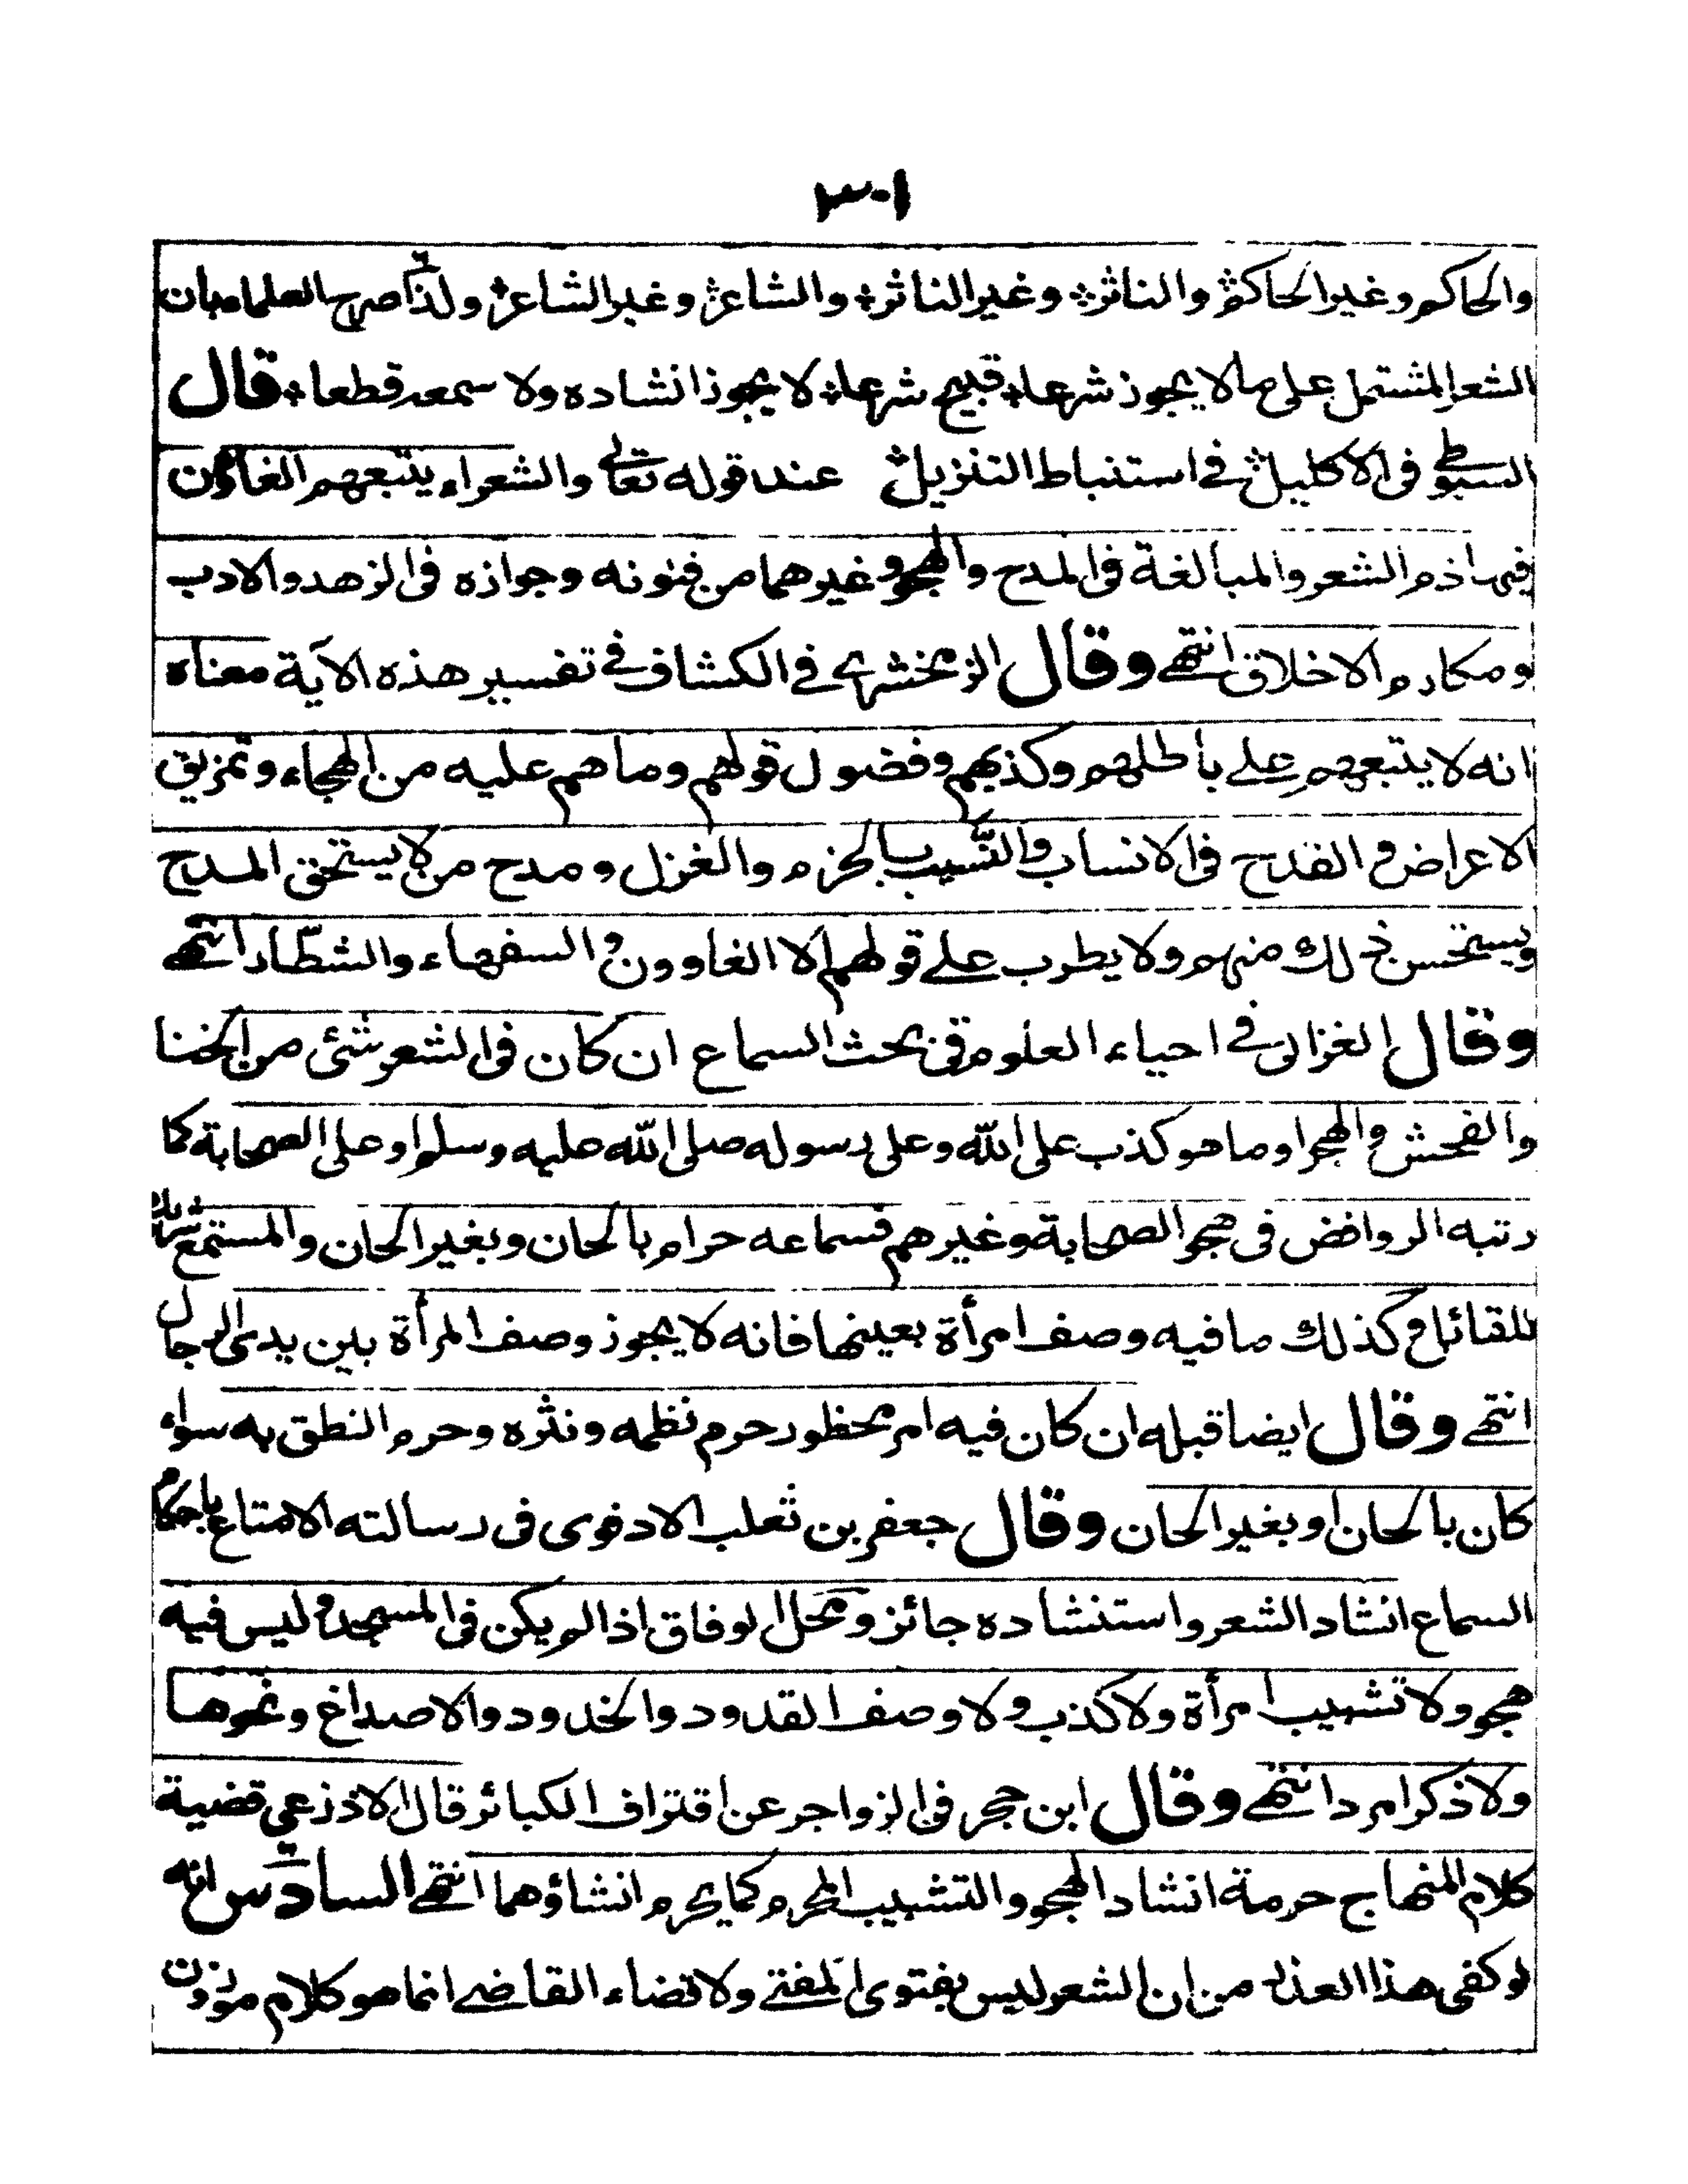 ١٠٣
والحاكم وغير الحاكم ؞ والناثر ؞ وغير الناثر ؞ والشاعر ؞ وغير الشاعر ؞ ولذا صرح العلماء بان
الشعر المشتمل على ما لا يجوز شرعا ؞ قبيح شرعا ؞ لا يجوز انشاده ولا سمعه قطعا ؞ قال
السيوطي في الاكليل ؞ في استنباط التنزيل ؞ عند قوله تعالى والشعراء يتبعهم الغاوون
فيها ذم الشعر والمبالغة في المدح والهجو وغيرهما من فنونه وجوازه في الزهد والادب
ومكارم الاخلاق انتهى وقال الزمخشري في الكشاف في تفسير هذه الآية معناه
انه لا يتبعهم على باطلهم وكذبهم وفضول قولهم وما هم عليه من الهجاء وتمزيق
الاعراض والقدح في الانساب والنسيب بالحرم والغزل ومدح من لا يستحق المدح
ويستحسن ذلك منهم ولا يطرب على قولهم الا الغاوون والسفهاء والشطار انتهى
وقال الغزالى في احياء العلوم في بحث السماع ان كان في الشعر شئ من الخنا
والفحش والهجر او ما هو كذب على الله وعلى رسوله صلى الله عليه وسلم او على الصحابة كما
رتبه الروافض فى هجو الصحابة وغيرهم فسماعه حرام بالحان وبغير الحان والمستمع شريك
للقائل وكذلك ما فيه وصف امرأة بعينها فانه لا يجوز وصف المرأة بين يدى الرجال
انتهى وقال ايضا قبله ان كان فيه امر محظور حرم نظمه ونثره وحرم النطق به سواء
كان بالحان او بغير الحان وقال جعفر بن ثعلب الادفوى فى رسالته الامتاع باحكام
السماع انشاد الشعر واستنشاده جائز ومحل الوفاق اذا لم يكن في المسجد وليس فيه
هجو ولا تشبيب امرأة ولا كذب ولا وصف القدود والخدود والاصداغ ونحوها
ولا ذكر امرد انتهى وقال ابن حجر في الزواجر عن اقتراف الكبائر قال الاذرعى قضية
كلام المنهاج حرمة انشاد الهجو والتشبيب المحرم كما يحرم انشاؤهما انتهى السادس انه
لو كفى هذا العذر من ان الشعر ليس بفتوى المفتى ولا قضاء القاضي انما هو كلام موزون